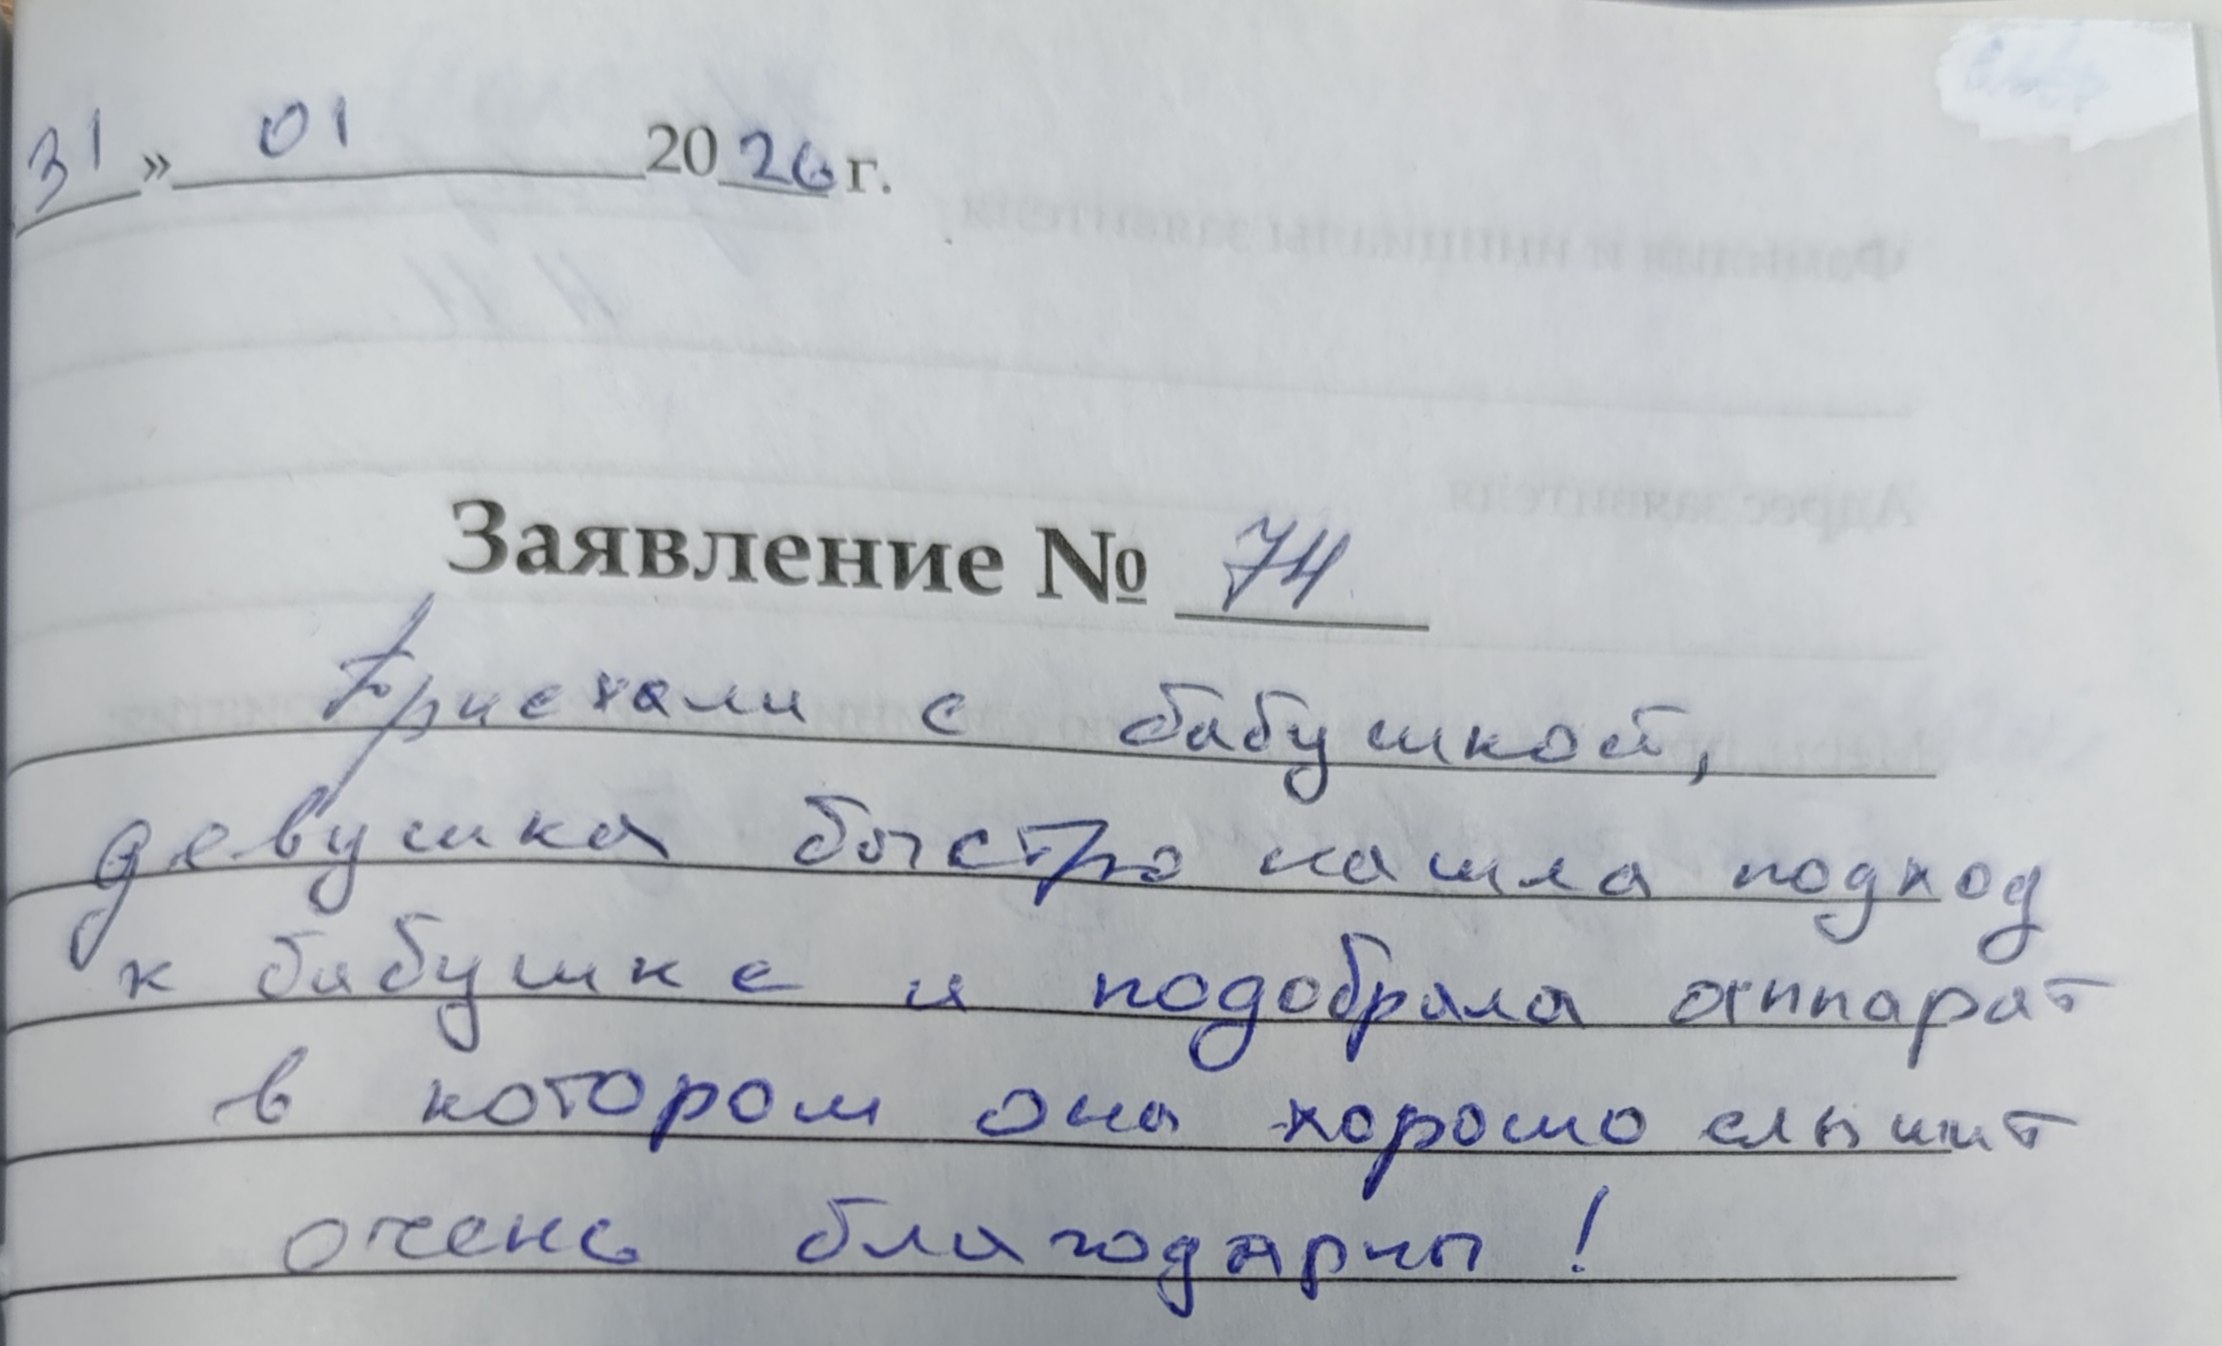 31 » 01 2026 г.
Заявление № 74
Приехали с бабушкой,
девушка быстро нашла подход
к бабушке и подобрала аппарат
в котором она хорошо слышит
очень благодарны !